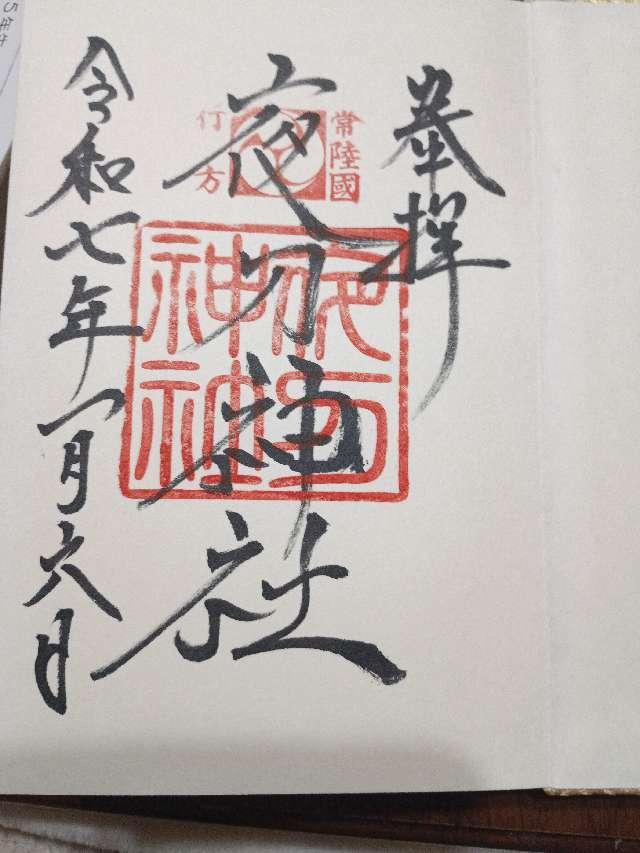 奉拝
常陸國
行方
夜刀神社
令和七年一月六日